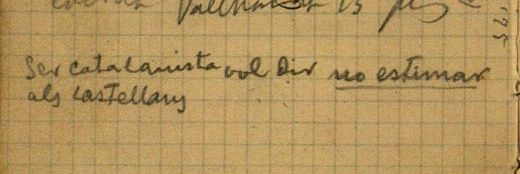 Ser catalanista vol dir no estimar
als castellans